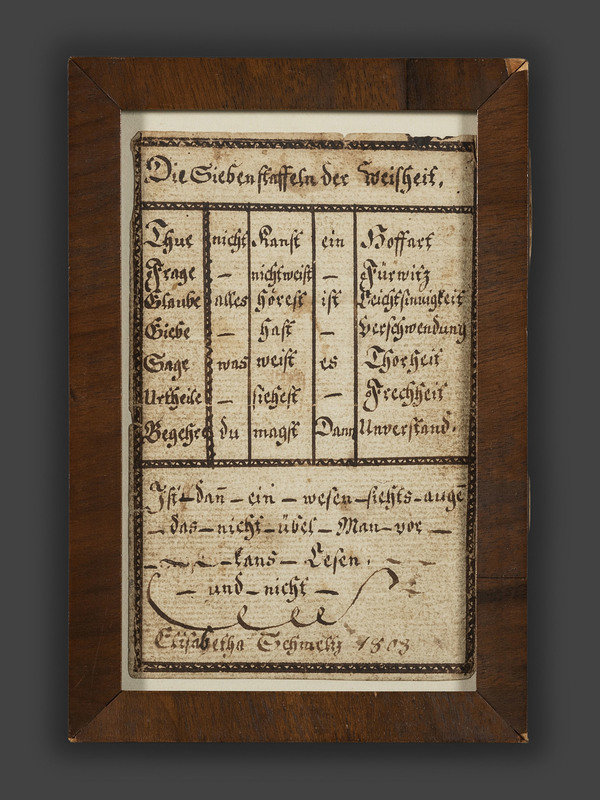 Die Sieben staffeln der Weisheit.
Thue nicht Kanst ein Hoffart
Frage – nichtweist – Fürwitz
Glaube alles hörest ist Leichtsinnigkeit
Giebe – hast – Verschwendung
Sage was weist es Thorheit
Urtheile – siehest – Frechheit
Begehre du magst Dann Unverstand.
Ist – dañ – ein – wesen – siehts – auge
– das – nicht – übel – Man – vor –
– kans – Lesen.
– und – nicht –
Elisabetha Schmeltz 1803